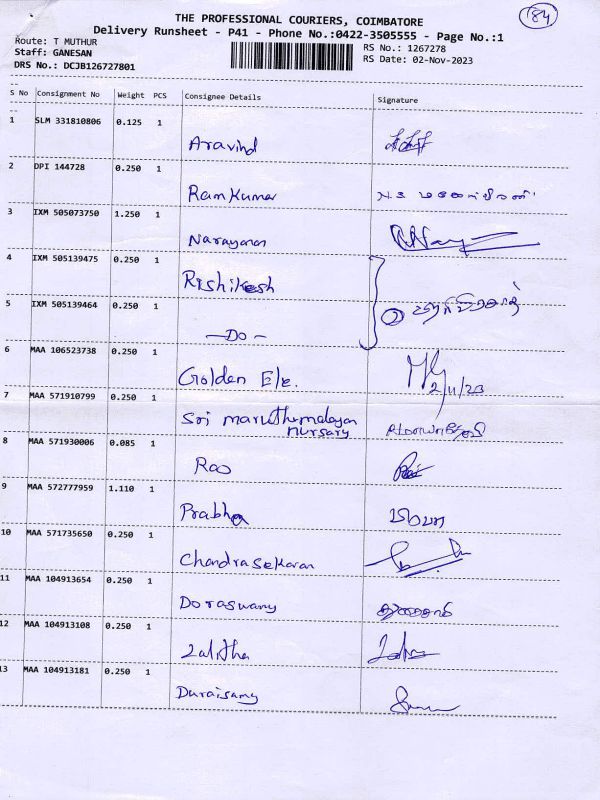 184
THE PROFESSIONAL COURIERS, COIMBATORE
Delivery Runsheet - P41 - Phone No.:0422-3505555 - Page No.:1
Route: T MUTHUR
RS No.: 1267278
Staff: GANESAN
RS Date: 02-Nov-2023
DRS No.: DCJB126727801
S No Consignment No Weight PCS Consignee Details Signature
1 SLM 331810806 0.125 1
Aravind
2 DPI 144728 0.250 1
Ram Kumar
3 IXM 505073750 1.250 1
Narayanan
4 IXM 505139475 0.250 1
Rishikesh
5 IXM 505139464 0.250 1
2
-Do-
6 MAA 106523738 0.250 1
Golden Ele. 2/11/23
7 MAA 571910799 0.250 1
Sri maruthumalayan
nursary
8 MAA 571930006 0.085 1
Rao
9 MAA 572777959 1.110 1
Prabha
10 MAA 571735650 0.250 1
Chandrasekaran
11 MAA 104913654 0.250 1
Doraswamy
12 MAA 104913108 0.250 1
Lalitha
13 MAA 104913181 0.250 1
Duraisamy